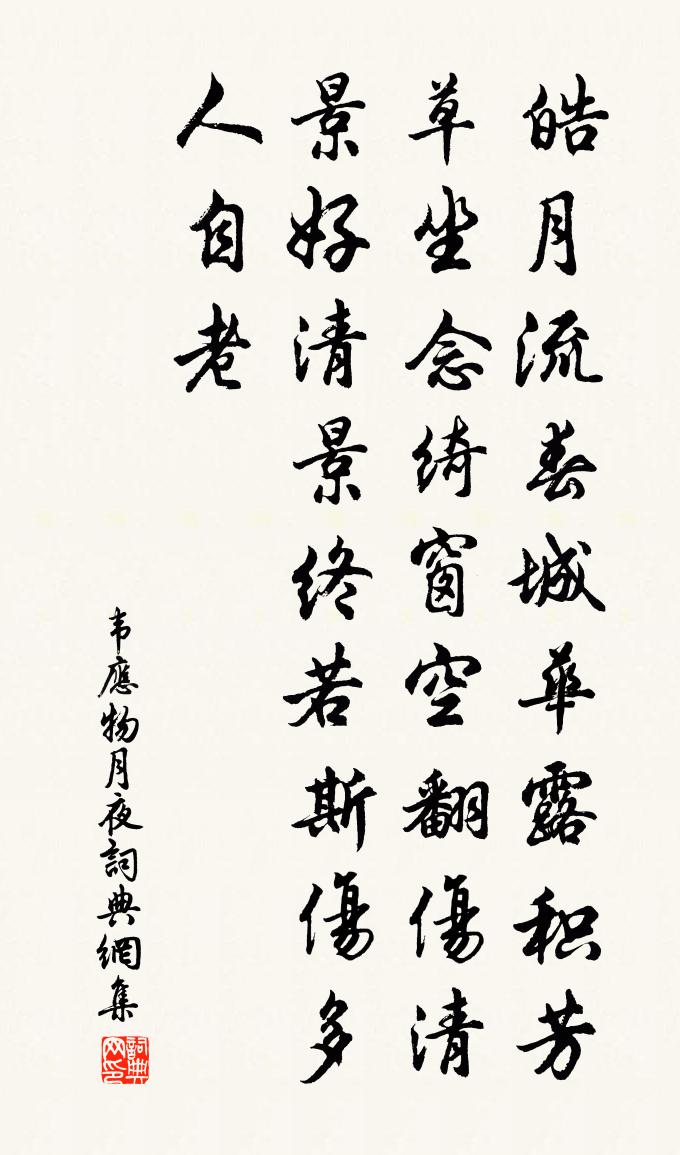 皓月流春城華露积芳
草坐念綺窗空翻傷清
景好清景終若斯傷多
人自老
韦應物月夜詞典網集
詞典网印